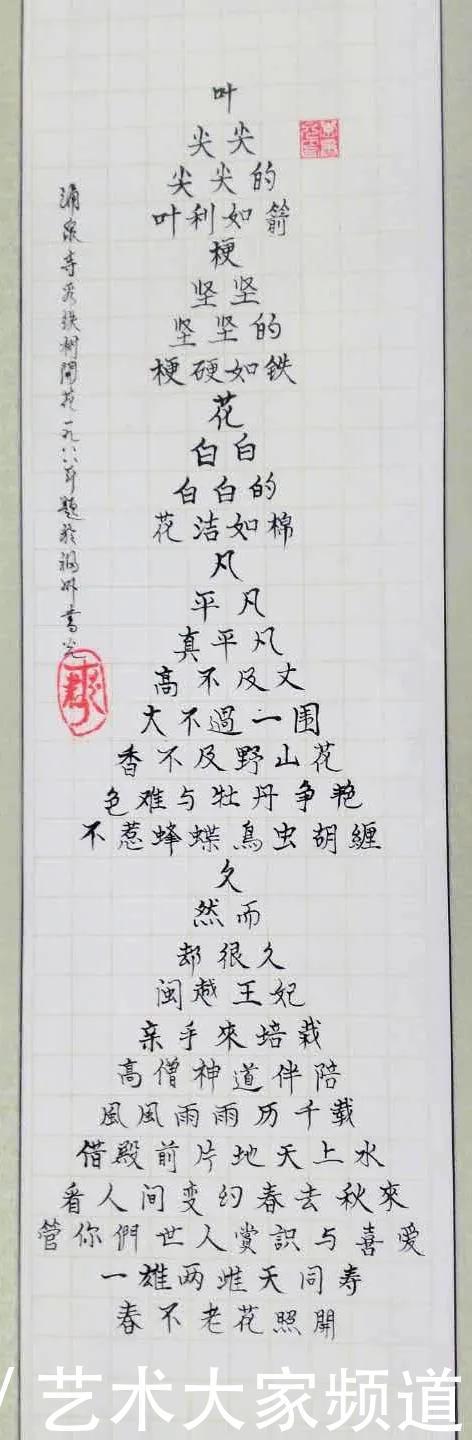 叶
尖尖
尖尖的
叶利如箭
梗
坚坚
坚坚的
梗硬如鉄
花
白白
白白的
花洁如棉
凡
平凡
真平凡
高不及丈
大不過一围
香不及野山花
色难与牡丹争艳
不惹蜂蝶鳥虫胡纏
久
然而
却很久
闽越王妃
亲手來培栽
高僧神道伴陪
風風雨雨历千載
借殿前片地天上水
看人间变约春去秋來
管你們世人赏識与喜爱
一雄两雌天同寿
春不老花照開
涌泉寺看鉄树開花一九八八年題於福州
艺术大家频道